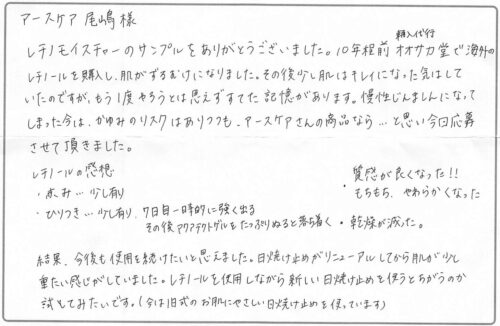 アースケア 尾嶋 様
レチノモイスチャーのサンプルをありがとうございました。10年程前 オオサカ堂で海外の
輸入代行
レチノールを購入し、肌がずるむけになりました。その後少し肌はキレイになった気はして
いたのですが、もう1度やろうとは思えずすてた記憶があります。慢性じんましんになって
しまった今は、かゆみのリスクはありつつも、アースケアさんの商品なら…と思い今回応募
させて頂きました。
レチノールの感想
・赤み… 少し有り
・ひりつき… 少し有り、7日目一時的に強く出る
その後アクアテクトゲルをたっぷりぬると落ち着く
・質感が良くなった!!
もちもち、やわらかくなった
・乾燥が減った。
結果、今後も使用を続けたいと思えました。日焼け止めがリニューアルしてから肌が少し
重たい感じがしていました。レチノールを使用しながら新しい日焼け止めを使うとちがうのか
試してみたいです。(今は旧式のお肌にやさしい日焼け止めを使っています)